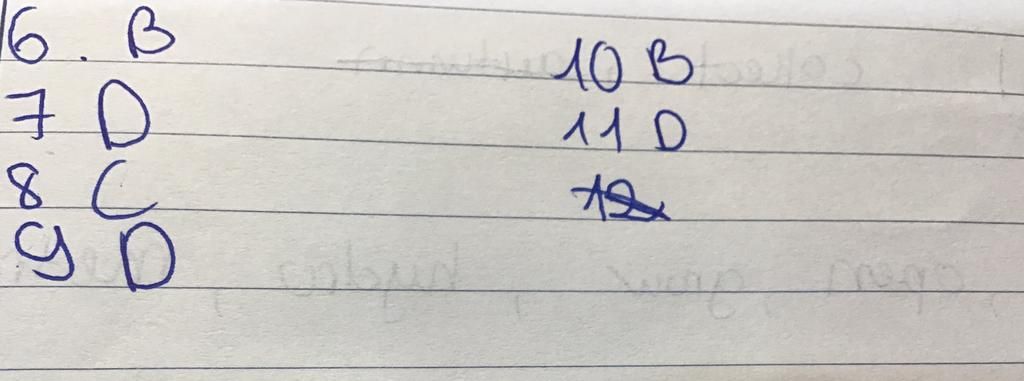 6. B
7 D
8 C
9 D
10 B
11 D